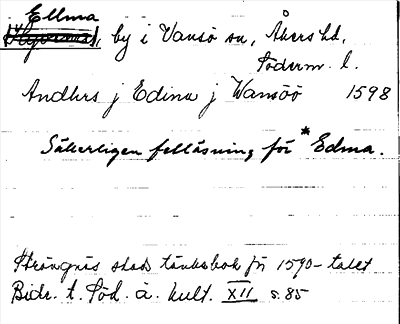 Ellma
by i Vansö sn, Åkers hd,
Söderm. l.
Andhrs j Edina j Wansöö 1598
Säkerligen felläsning för *Edma.
Strängnäs stads tänkebok för 1590-talet
Bidr. t. Söd. ä. kult. XII s. 85